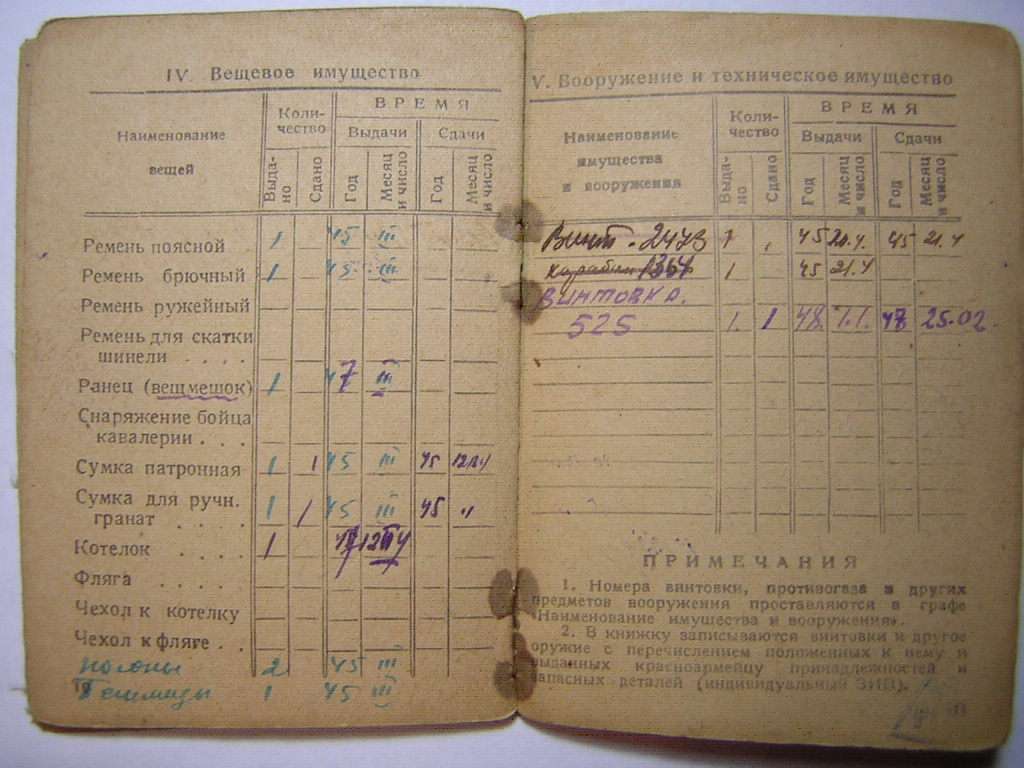 IV. Вещевое имущество
Наименование вещей
Количество
ВРЕМЯ
Выдачи
Сдачи
Выдано
Сдано
Год
Месяц и число
Год
Месяц и число
Ремень поясной 1 45 III
Ремень брючный 1 45 III
Ремень ружейный
Ремень для скатки
шинели . . . .
Ранец (вещмешок) 1 47 III
Снаряжение бойца
кавалерии . . .
Сумка патронная 1 1 45 III 45
Сумка для ручн.
гранат . . . . 1 1 45 III 45 "
Котелок . . . . 1
Фляга . . . .
Чехол к котелку
Чехол к фляге . .
погоны 2 45 III
1 45 III
V. Вооружение и техническое имущество
Наименование
имущества
и вооружения
Количество
ВРЕМЯ
Выдачи
Сдачи
Выдано
Сдано
Год
Месяц и число
Год
Месяц и число
Винт. 2473 1 45 20.4. 45 21.4
карабин 1354 1 45 21.4
Винтовка.
525 1. 1 48. 1.1. 48 25.02.
ПРИМЕЧАНИЯ
1. Номера винтовки, противогаза и других
предметов вооружения проставляются в графе
«Наименование имущества и вооружения».
2. В книжку записываются винтовки и другое
оружие с перечислением положенных к нему и
выданных красноармейцу принадлежностей и
запасных деталей (индивидуальный ЗИП).